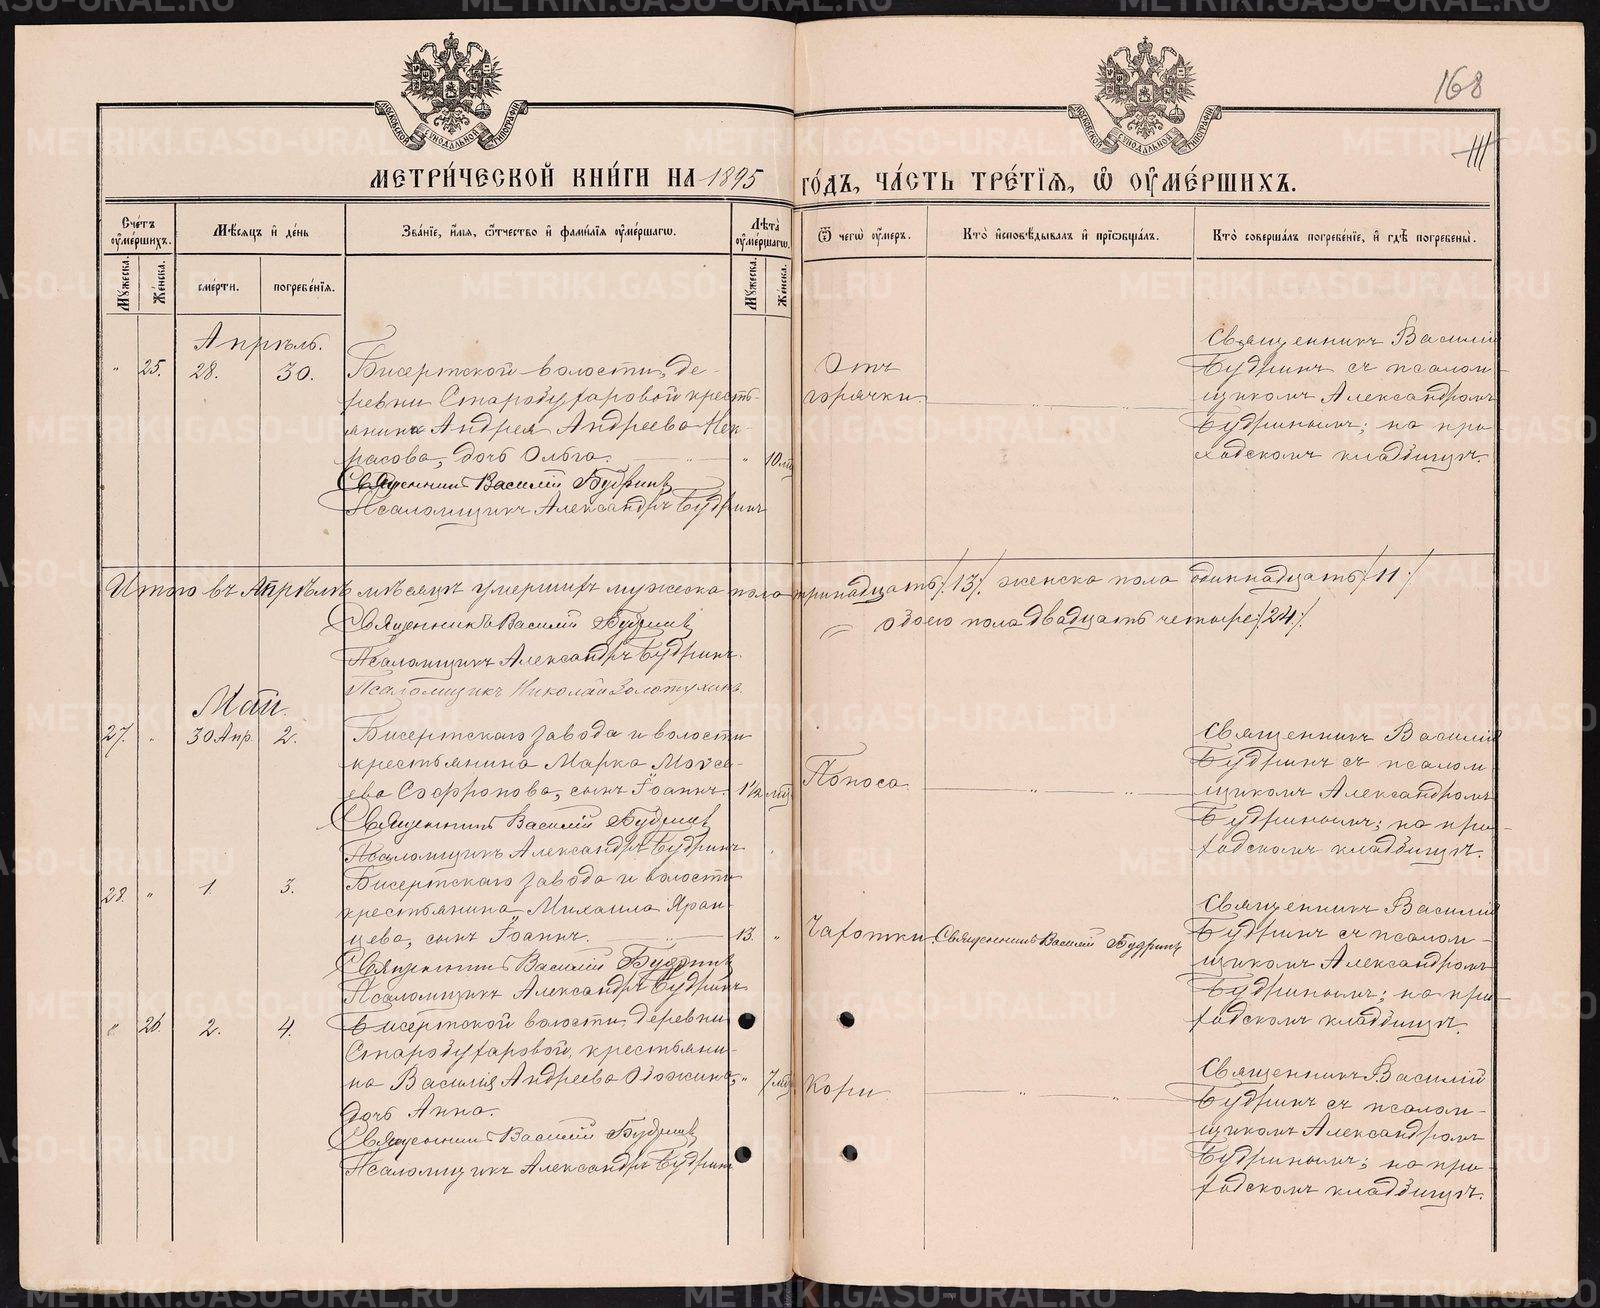 168
III
МОСКОВСКОЙ СѴНОДАЛЬНОЙ ТИПОГРАФІИ
МОСКОВСКОЙ СѴНОДАЛЬНОЙ ТИПОГРАФІИ
МЕТРИ́ЧЕСКОЙ КНИ́ГИ НА 1895 ГО́ДЪ, ЧА́СТЬ ТРЕ́ТІѦ, Ѽ ОУ҆МЕ́РШИХЪ.
Сче́тъ оу҆ме́ршихъ.
Мѣ́сѧцъ и҆ де́нь
Зва́нїе, и҆́мѧ, ѻ҆́тчество и҆ фами́лїѧ оу҆ме́ршагѡ.
Лѣ́та оу҆ме́ршагѡ.
Ѿ чегѡ̀ оу҆́меръ.
Кто̀ и҆сповѣ́дывалъ и҆ прїѡбща́лъ.
Кто̀ соверша́лъ погребе́нїе, и҆ гдѣ̀ погребены̀.
Мꙋ́жеска.
Же́нска.
сме́рти.
погребе́нїѧ.
Мꙋ́жеска.
Же́нска.
Апрѣль.
" 25. 28. 30.
Бисертской волости, де-
ревни Старобухаровой кресть-
янина Андрея Андреева Нек-
расова, дочь Ольга. " 10 мц
Священникъ Василій Будринъ
Псаломщикъ Александръ Будринъ
Отъ
горячки.
Священникъ Василій
Будринъ съ псалом-
щикомъ Александромъ
Будринымъ; на при-
ходскомъ кладбищѣ.
Итого въ Апрѣлѣ мѣсяцѣ умершихъ мужеска пола тринадцать /13/. женска пола одиннадцать /11/
обоего пола двадцать четыре /24/.
Священникъ Василій Будринъ
Псаломщикъ Александръ Будринъ.
Псаломщикъ Николай Золотухинъ.
Май.
27. " 30 Апр. 2.
Бисертскаго завода и волости
крестьянина Марка Моисе-
ева Софронова, сынъ Іоаннъ. 1½ мц
Священникъ Василій Будринъ
Псаломщикъ Александръ Будринъ
Поноса.
Священникъ Василій
Будринъ съ псалом-
щикомъ Александромъ
Будринымъ; на при-
ходскомъ кладбищѣ.
28. " 1 3.
Бисертскаго завода и волости
крестьянина Михаила Яран-
цева, сынъ Іоаннъ. 13. "
Священникъ Василій Будринъ
Псаломщикъ Александръ Будринъ
Чахотки.
Священникъ Василій Будринъ
Священникъ Василій
Будринъ съ псалом-
щикомъ Александромъ
Будринымъ; на при-
ходскомъ кладбищѣ.
" 26 2. 4.
Бисертской волости, деревни
Старобухаровой, крестьяни-
на Василія Андреева Обожина, " 7 мц
дочь Анна.
Священникъ Василій Будринъ
Псаломщикъ Александръ Будринъ
Кори.
Священникъ Василій
Будринъ съ псалом-
щикомъ Александромъ
Будринымъ; на при-
ходскомъ кладбищѣ.
METRIKI.GASO-URAL.RU